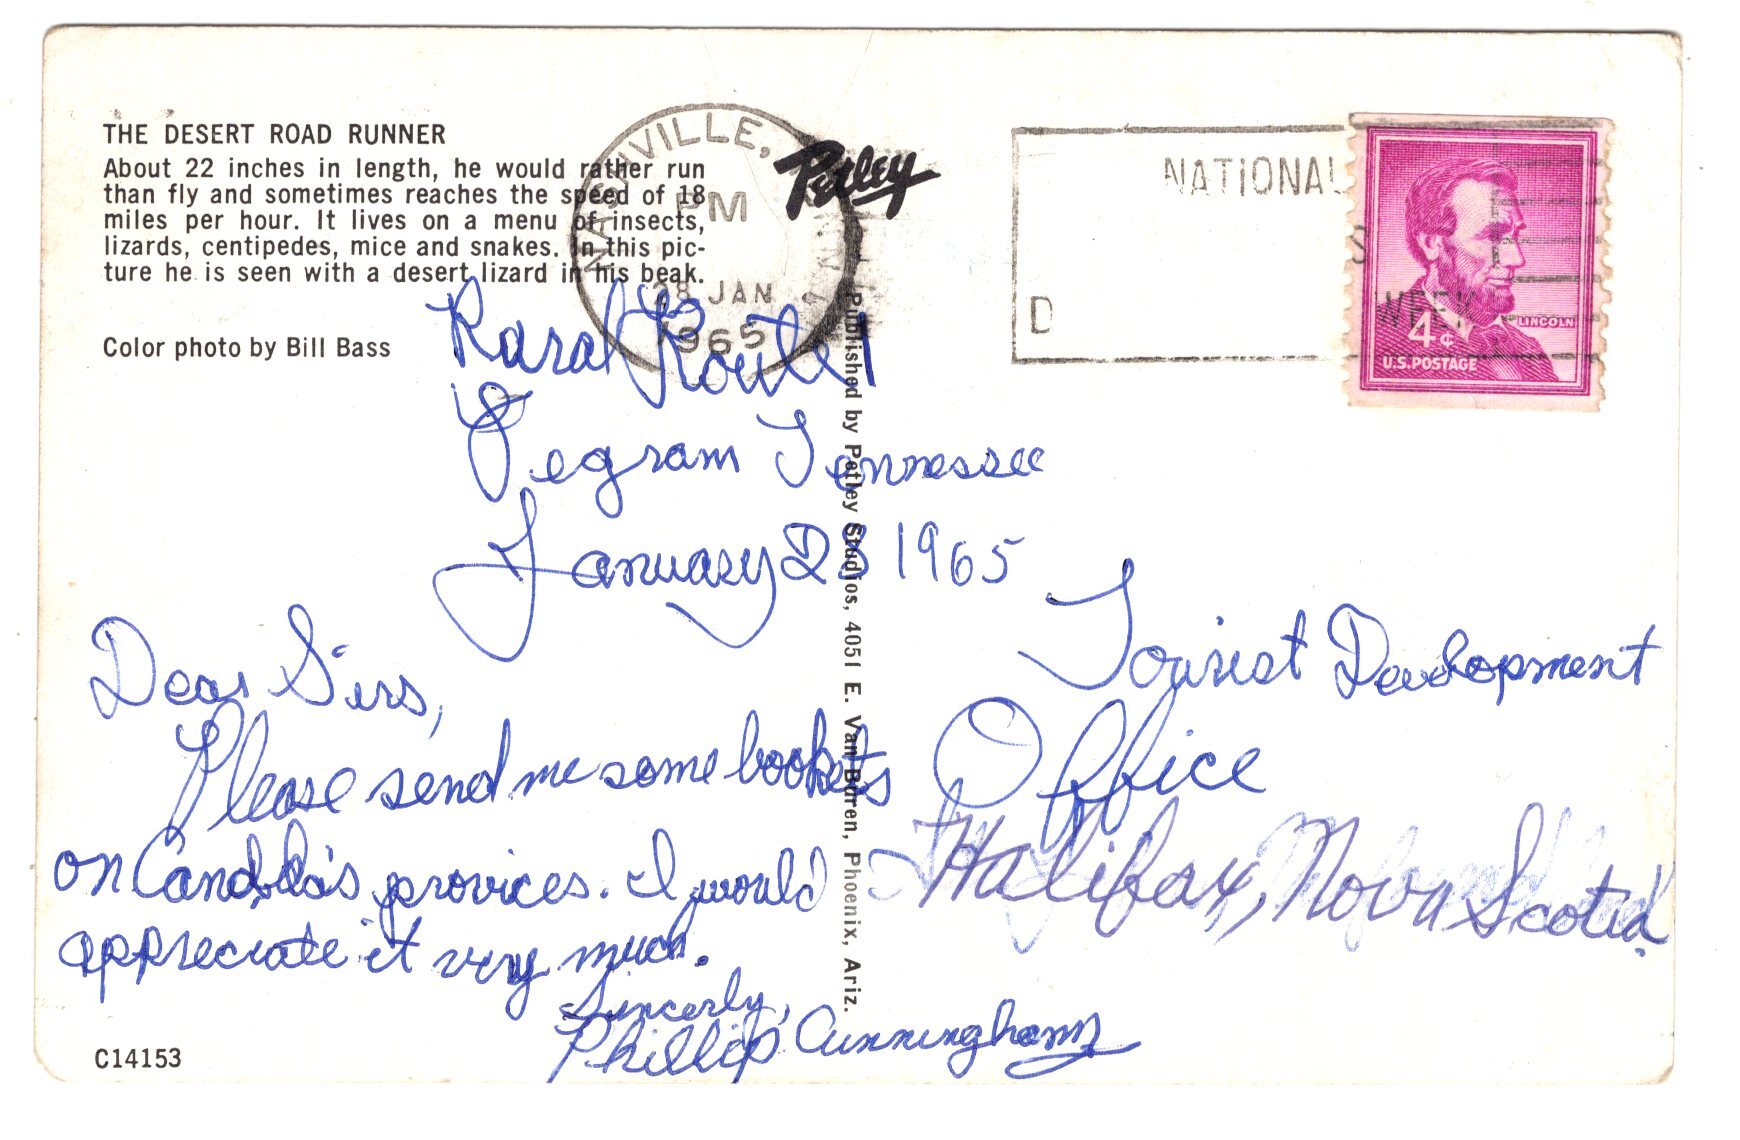 THE DESERT ROAD RUNNER
About 22 inches in length, he would rather run
than fly and sometimes reaches the speed of 18
miles per hour. It lives on a menu of insects,
lizards, centipedes, mice and snakes. In this pic-
ture he is seen with a desert lizard in his beak.
Color photo by Bill Bass
NASHVILLE,
PM
28 JAN
1965
Petley
NATIONAL
WEEK
LINCOLN
4¢
U.S. POSTAGE
Published by Petley Studios, 4051 E. Van Buren, Phoenix, Ariz.
Rural Route 1
Pegram Tennessee
January 28 1965
Dear Sirs,
Please send me some booklets
on Canada's provices. I would
appreciate it very much.
Sincerly,
Phillip Cunningham
Tourist Development
Office
Halifax, Nova Scotia
C14153